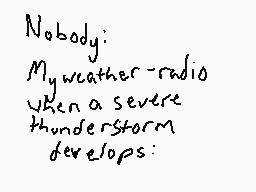 Nobody:
My weather-radio
when a severe
thunderstorm
develops: